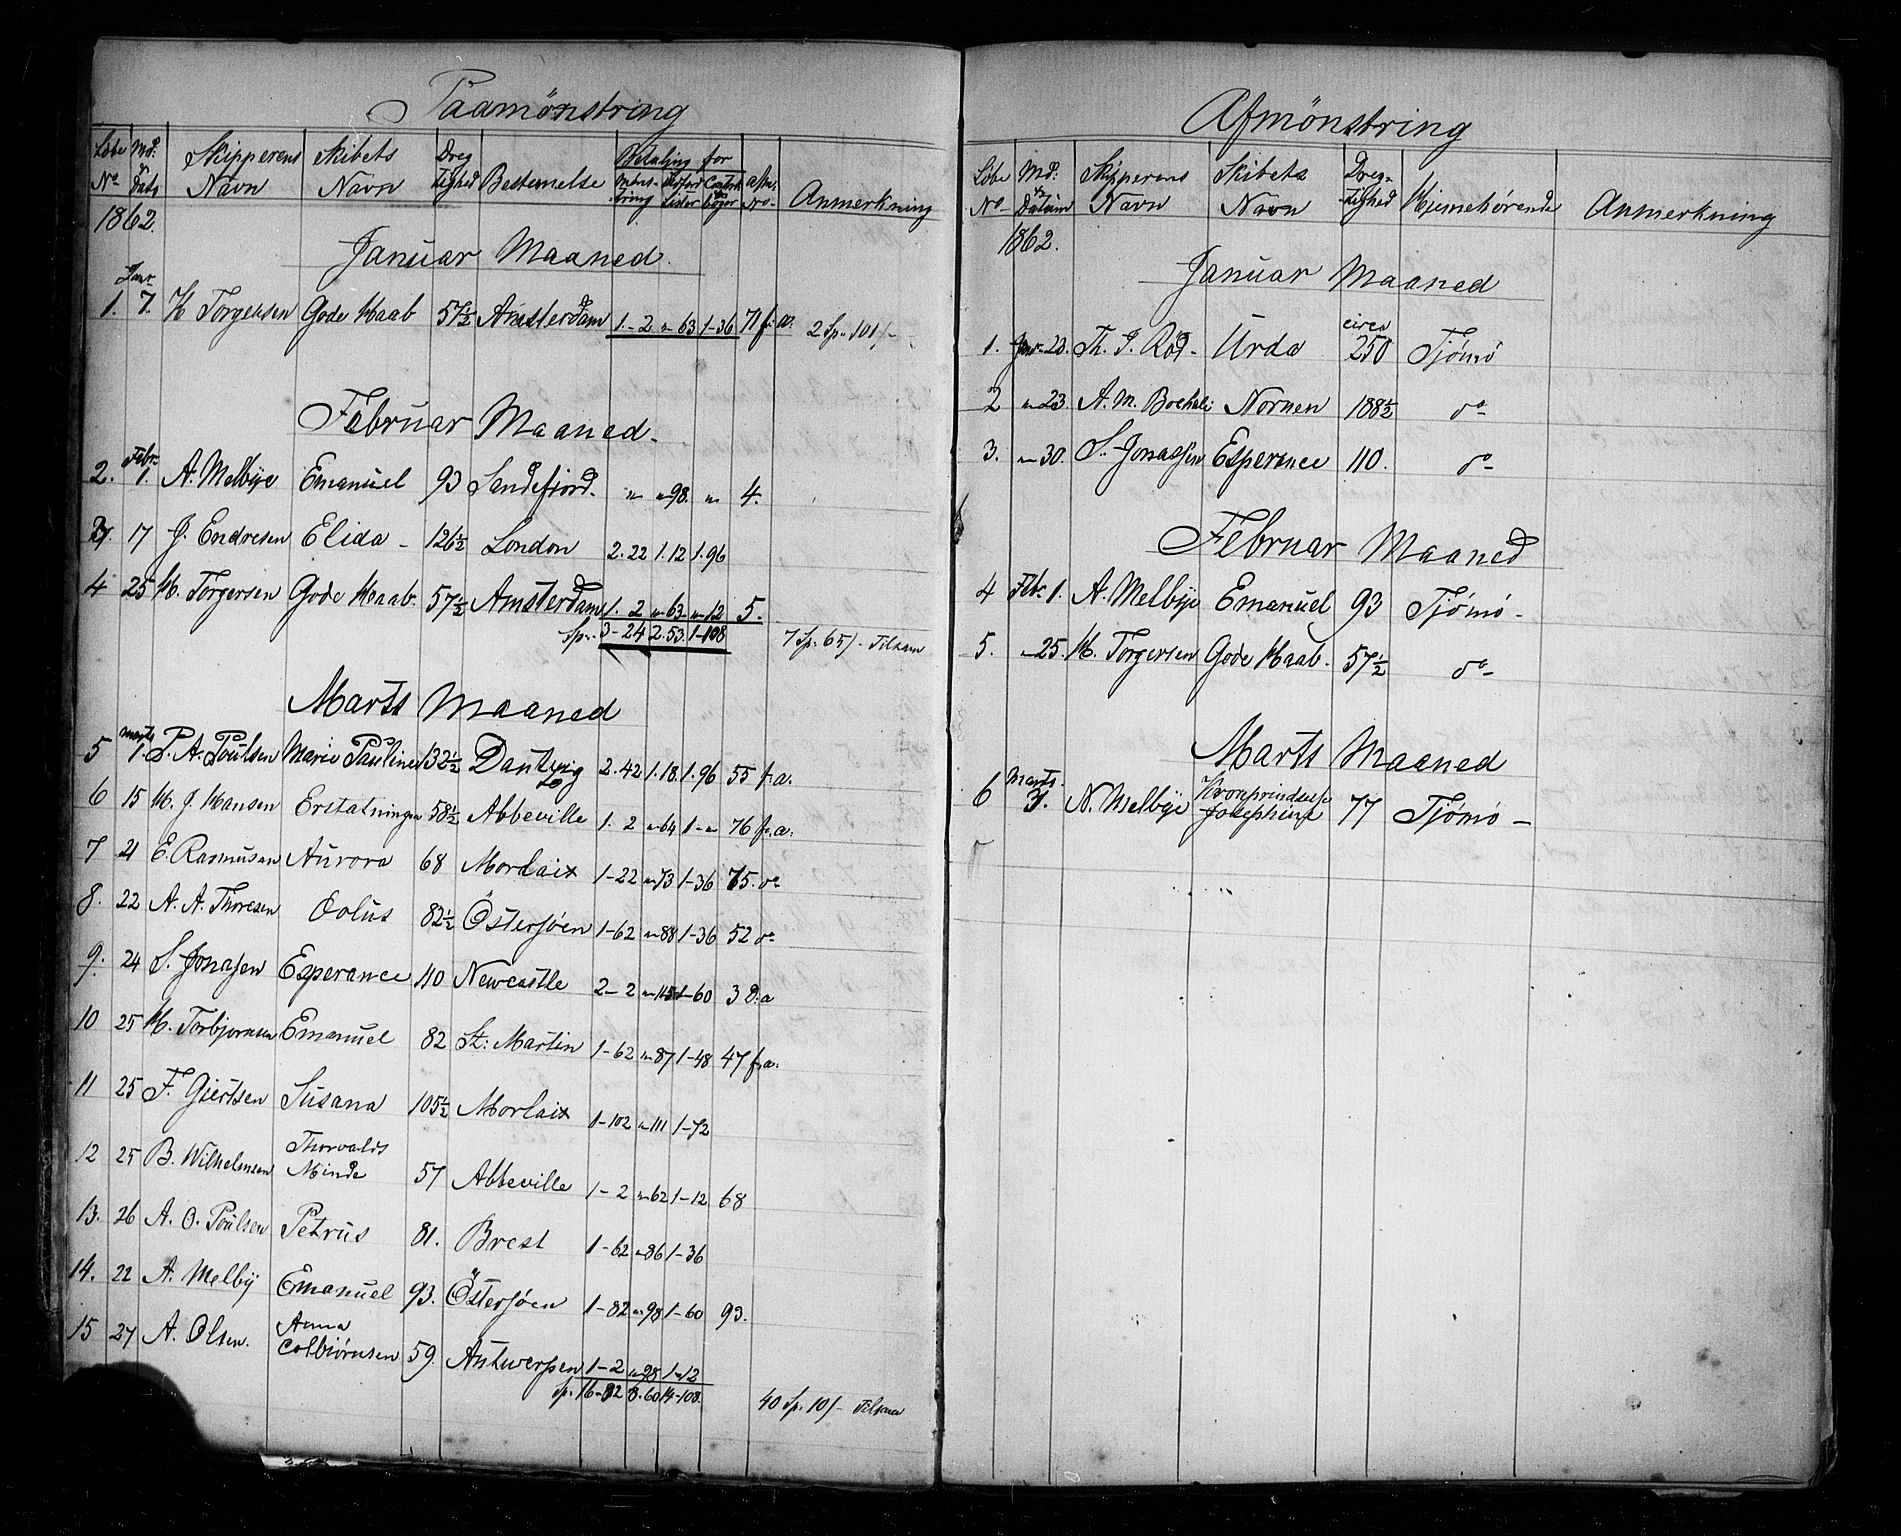 Paamönstring
Löbe No Md: & Dato Skipperens Navn Skibets Navn Dreg tighed Bestemelse Betaling for Mønstring Contrabøger afm. No Anmerkning
1862.
Januar Maaned.
1. Janr 7. H Torgersen Gode Haab 57½ Amsterdam 1.-2 " 63 1-36 71 f. a. 2 Sp. 101/-
Februar Maaned.
2. Febr. 1. A. Melbye Emanuel 93 Sandefjord. " " 98. " 4.
3 17 J. Endresen Elida - 126½ London 2.22 1.12 1.96
4 25 H. Torgersen Gode Haab. 57½ Amsterdam 1. 2 " 63 " 12 5.
Sp. 3-24 2.53. 1-108 7 Sp. 65/- Tilsam
Marts Maaned
5 Marts 1. P. A. Poulsen Marie Pauline 132½ Dantzig 2.42 1.18. 1.96 55 f. a.
6 15 H. J. Hansen Erstatningen 58½ Abbeville 1. 2 " 64 1-" 76 f. a.
7 21 E. Rasmusen Aurora 68 Mordaix 1-22 " 73 1-36 75. do
8. 22 A. A. Thoresen Æolus 82½ Östersjöen 1-62 " 88 1-36 52 do
9. 24 S. Jonassen Esperance 110 Newcastle 2-2 " 105 1-60 3 d. a
10 25 H. Torbjornsen Emanuel 82 St: Martin 1-62 " 87 1-48 47 f. a.
11 25 F. Giertsen Susana 105½ Morlaix 1-102 " 111 1-72
12 25 B. Wilhelmsen Thorvalds Minde 57 Abbeville 1-2 " 62 1-12 68
13. 26 A. O. Poulsen Petrus 81. Brest 1-62 " 86 1-36
14. 22 A. Melby Emanuel 93. Östersjöen 1-82 " 98 1-60 93.
15 27 A. Olsen. Anna Colbiörnsen 59. Antwerpen 1-2 " 1-12
Sp. 16-82 8.60 14-108. 40 Sp. 10/- Tilsam
Afmönstring
Löbe No Md. & Datum Skipperens Navn Skibets Navn Dreg-tighed Hjemehörende Anmerkning
1862.
Januar Maaned
1. Janr 20. Th. J. Röd - Urda circa 250 Tjömö
2 " 23. A. M. Nornen 188½ do
3. " 30. S. Jonassen Esperance 110. do
Februar Maaned
4 Febr. 1. A. Melbye Emanuel 93 Tjömö -
5. " 25. H. Torgersen Gode Haab. 57½ do
Marts Maaned
6 Marts 3. N. Melbye Kronprindsesse Josephine 77 Tjömö -